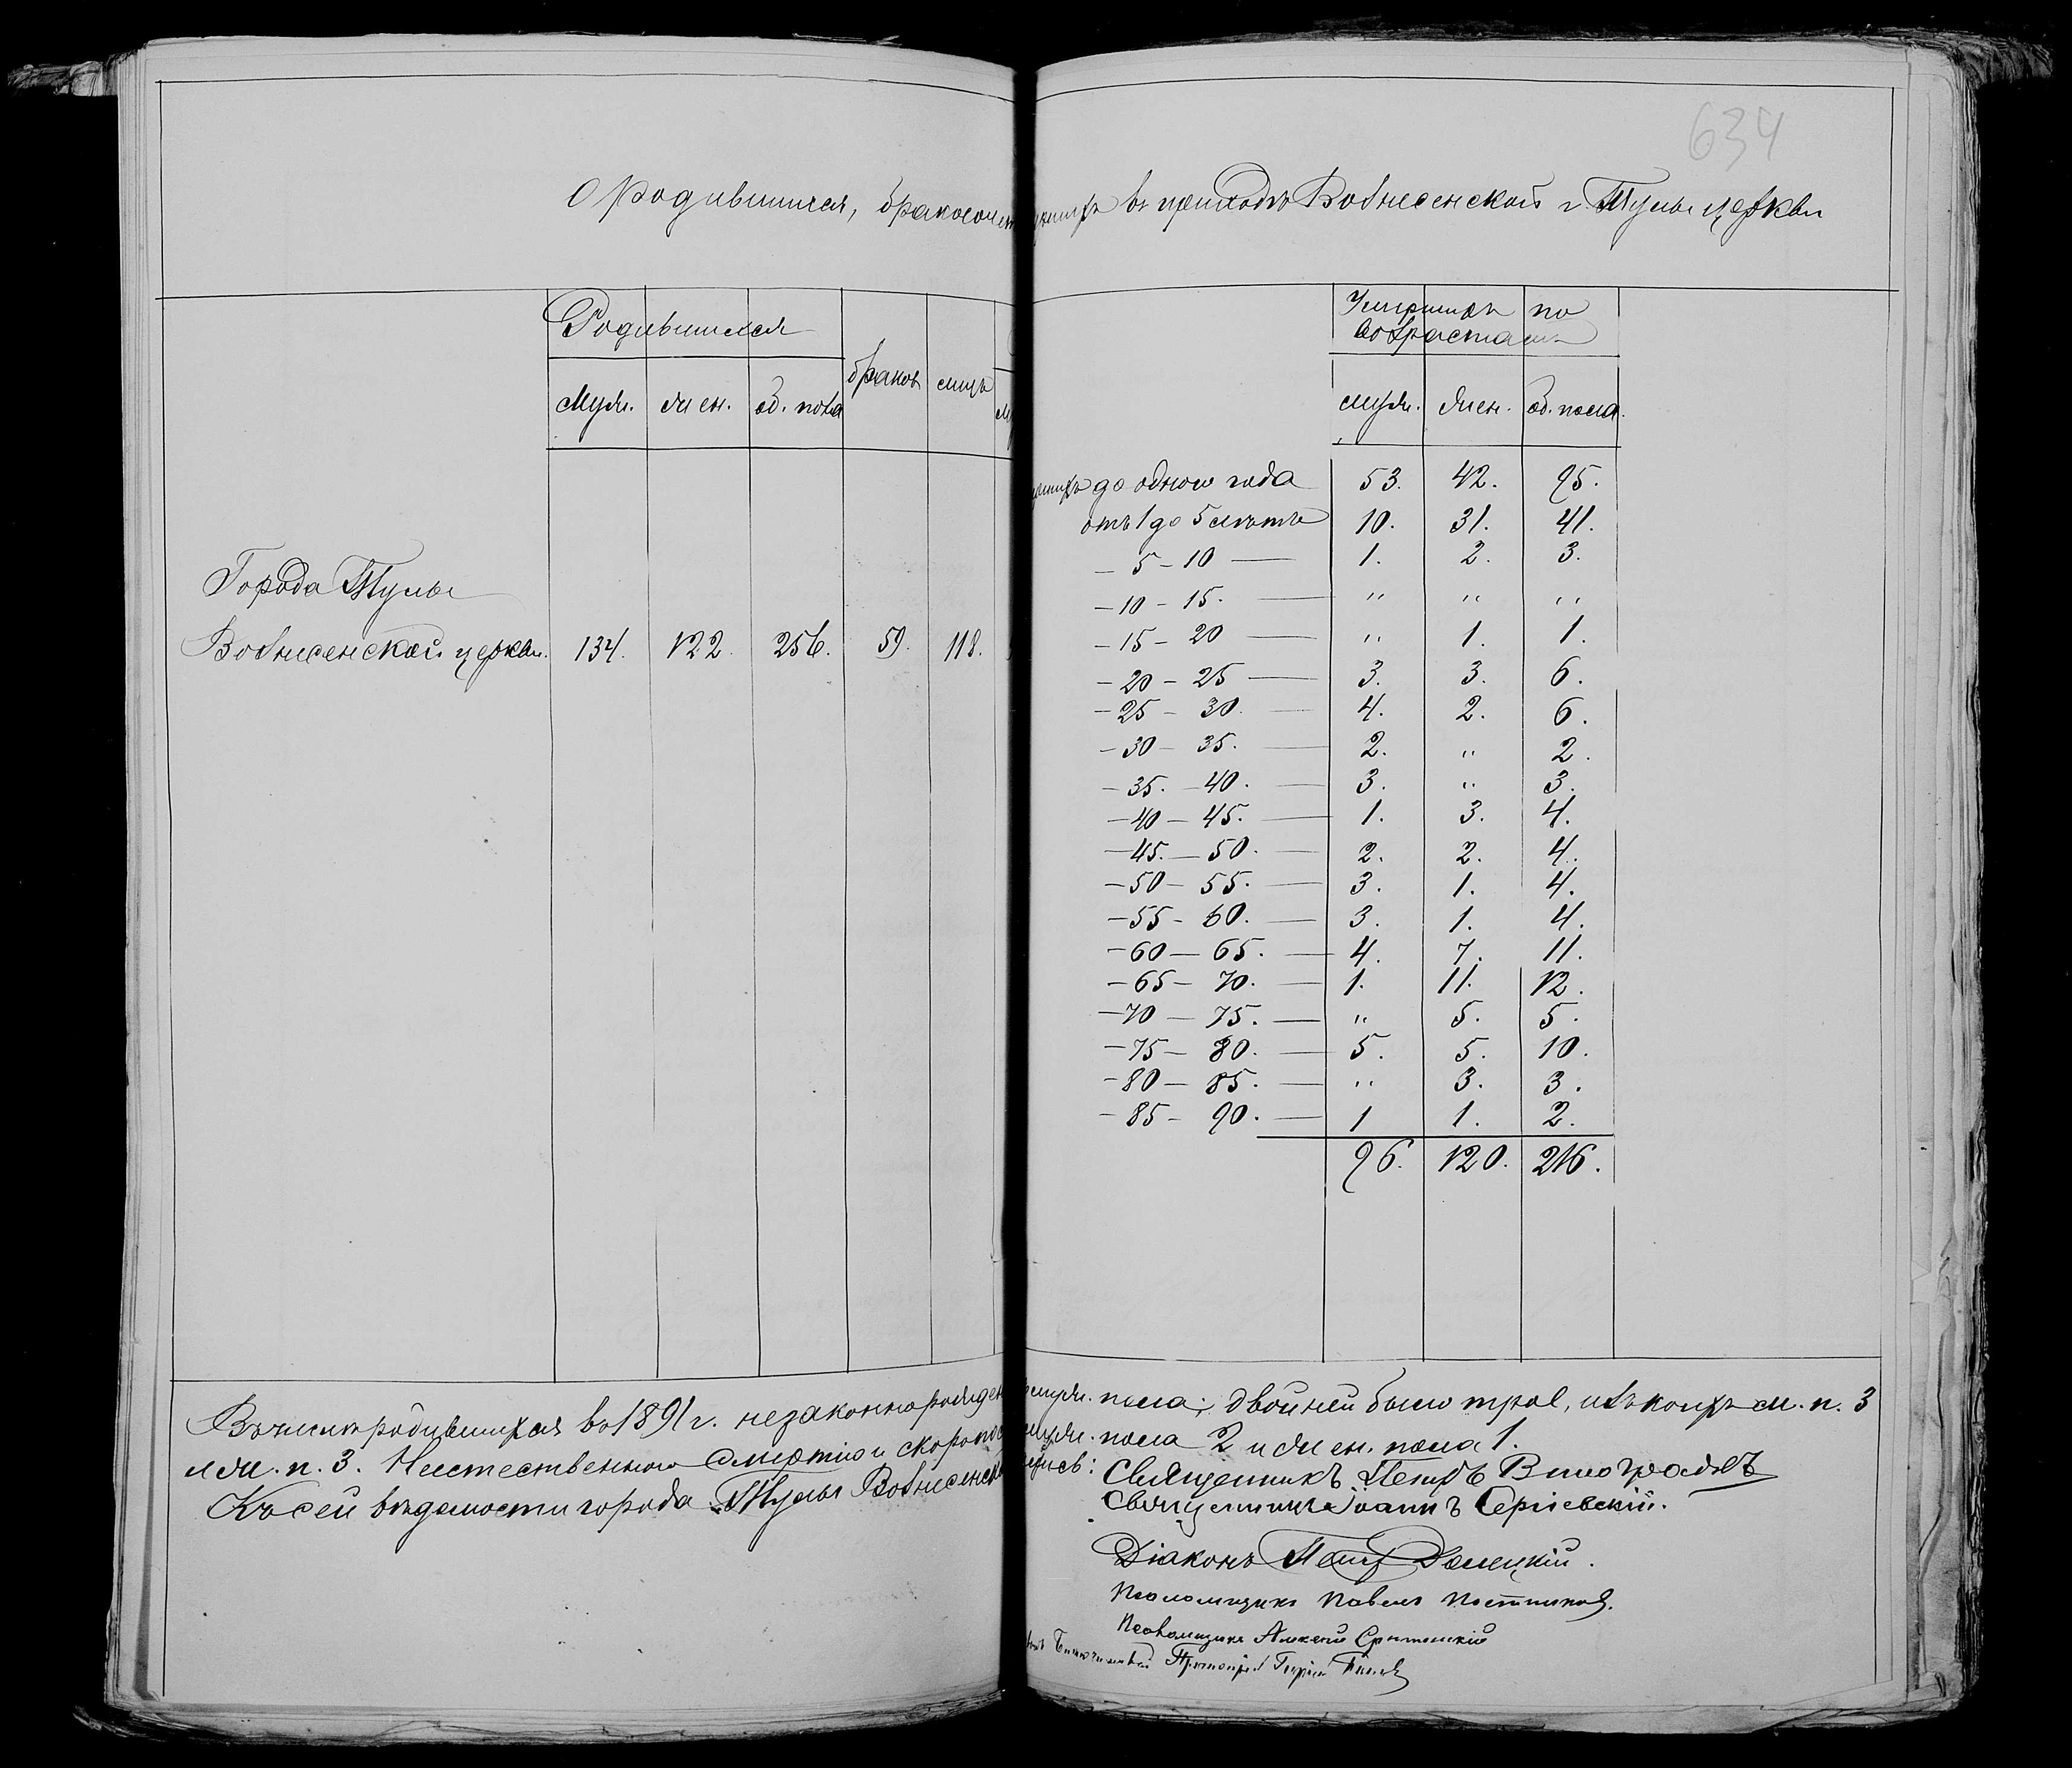 634
О родившихся, бракосочет
шихъ въ приходѣ Вознесенской г. Тулы церкви
Родившихся
браковъ
лицъ
Муж. жен. об. пола
Города Тулы
Вознесенской церкви. 134. 122. 256. 59. 118.
Умершихъ по
возрастамъ
муж. жен. об. пола.
до одного года 53. 42. 95.
отъ 1 до 5 лѣтъ 10. 31. 41.
— 5 — 10 — 1. 2. 3.
— 10 — 15. — " " "
— 15 — 20 — " 1. 1.
— 20 — 25 — 3. 3. 6.
— 25 — 30. — 4. 2. 6.
— 30 — 35. — 2. " 2.
— 35. — 40. — 3. " 3.
— 40 — 45. — 1. 3. 4.
— 45. — 50. — 2. 2. 4.
— 50 — 55. — 3. 1. 4.
— 55 — 60. — 3. 1. 4.
— 60 — 65. — 4. 7. 11.
— 65 — 70. — 1. 11. 12.
— 70 — 75. — " 5. 5.
— 75 — 80. — 5. 5. 10.
— 80 — 85. — " 3. 3.
— 85 — 90. — 1 1. 2.
96. 120. 216.
Въ числѣ родившихся въ 1891 г. незаконнорожден
муж. пола; двойней было трое, изъ коихъ м. п. 3
и ж. п. 3. Неестественною смертію и скоропос
муж. пола 2 и жен. пола 1.
Къ сей вѣдомости города Тулы Вознесенской
Священникъ Петръ Виноградовъ
Священникъ Іоаннъ Сергіевскій.
Діаконъ Донецкій.
Псаломщикъ Павелъ Постниковъ.
Псаломщикъ Алексѣй Срѣтенскій
Благочинный Протоіерей